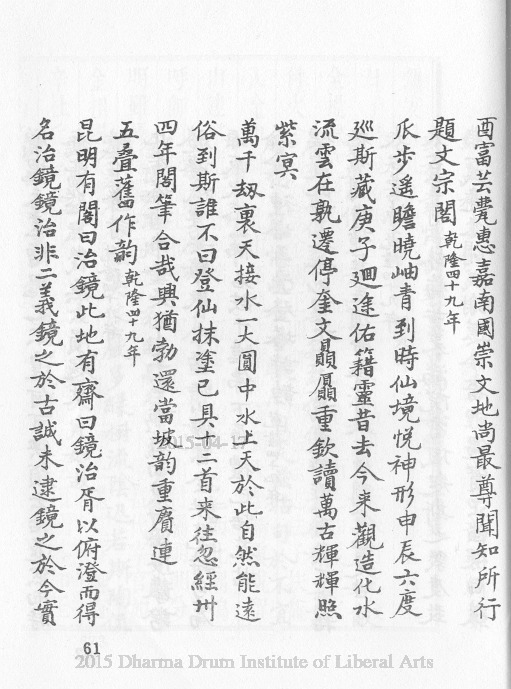 酉富芸甍惠嘉南國崇文地尚最尊聞知所行
題文宗閣乾隆四十九年
瓜步遥瞻曉岫青到時仙境悦神形申辰六度
廵斯藏庚子迴途佑籍靈昔去今来觀造化水
流雲在孰遷停奎文贔屭重欽讀萬古輝輝照
紫㝠
萬千刼裏天接水一大圓中水上天於此自然能遠
俗到斯誰不曰登仙抹塗已具十二首来往忽經卅
四年閣筆合哉興猶勃還當坡韵重賡連
五叠舊作韵乾隆四十九年
昆明有閣曰治鏡此地有齋曰鏡治胥以俯澄而得
名治鏡鏡治非二義鏡之於古誠未逮鏡之於今實
61
2015 Dharma Drum Institute of Liberal Arts